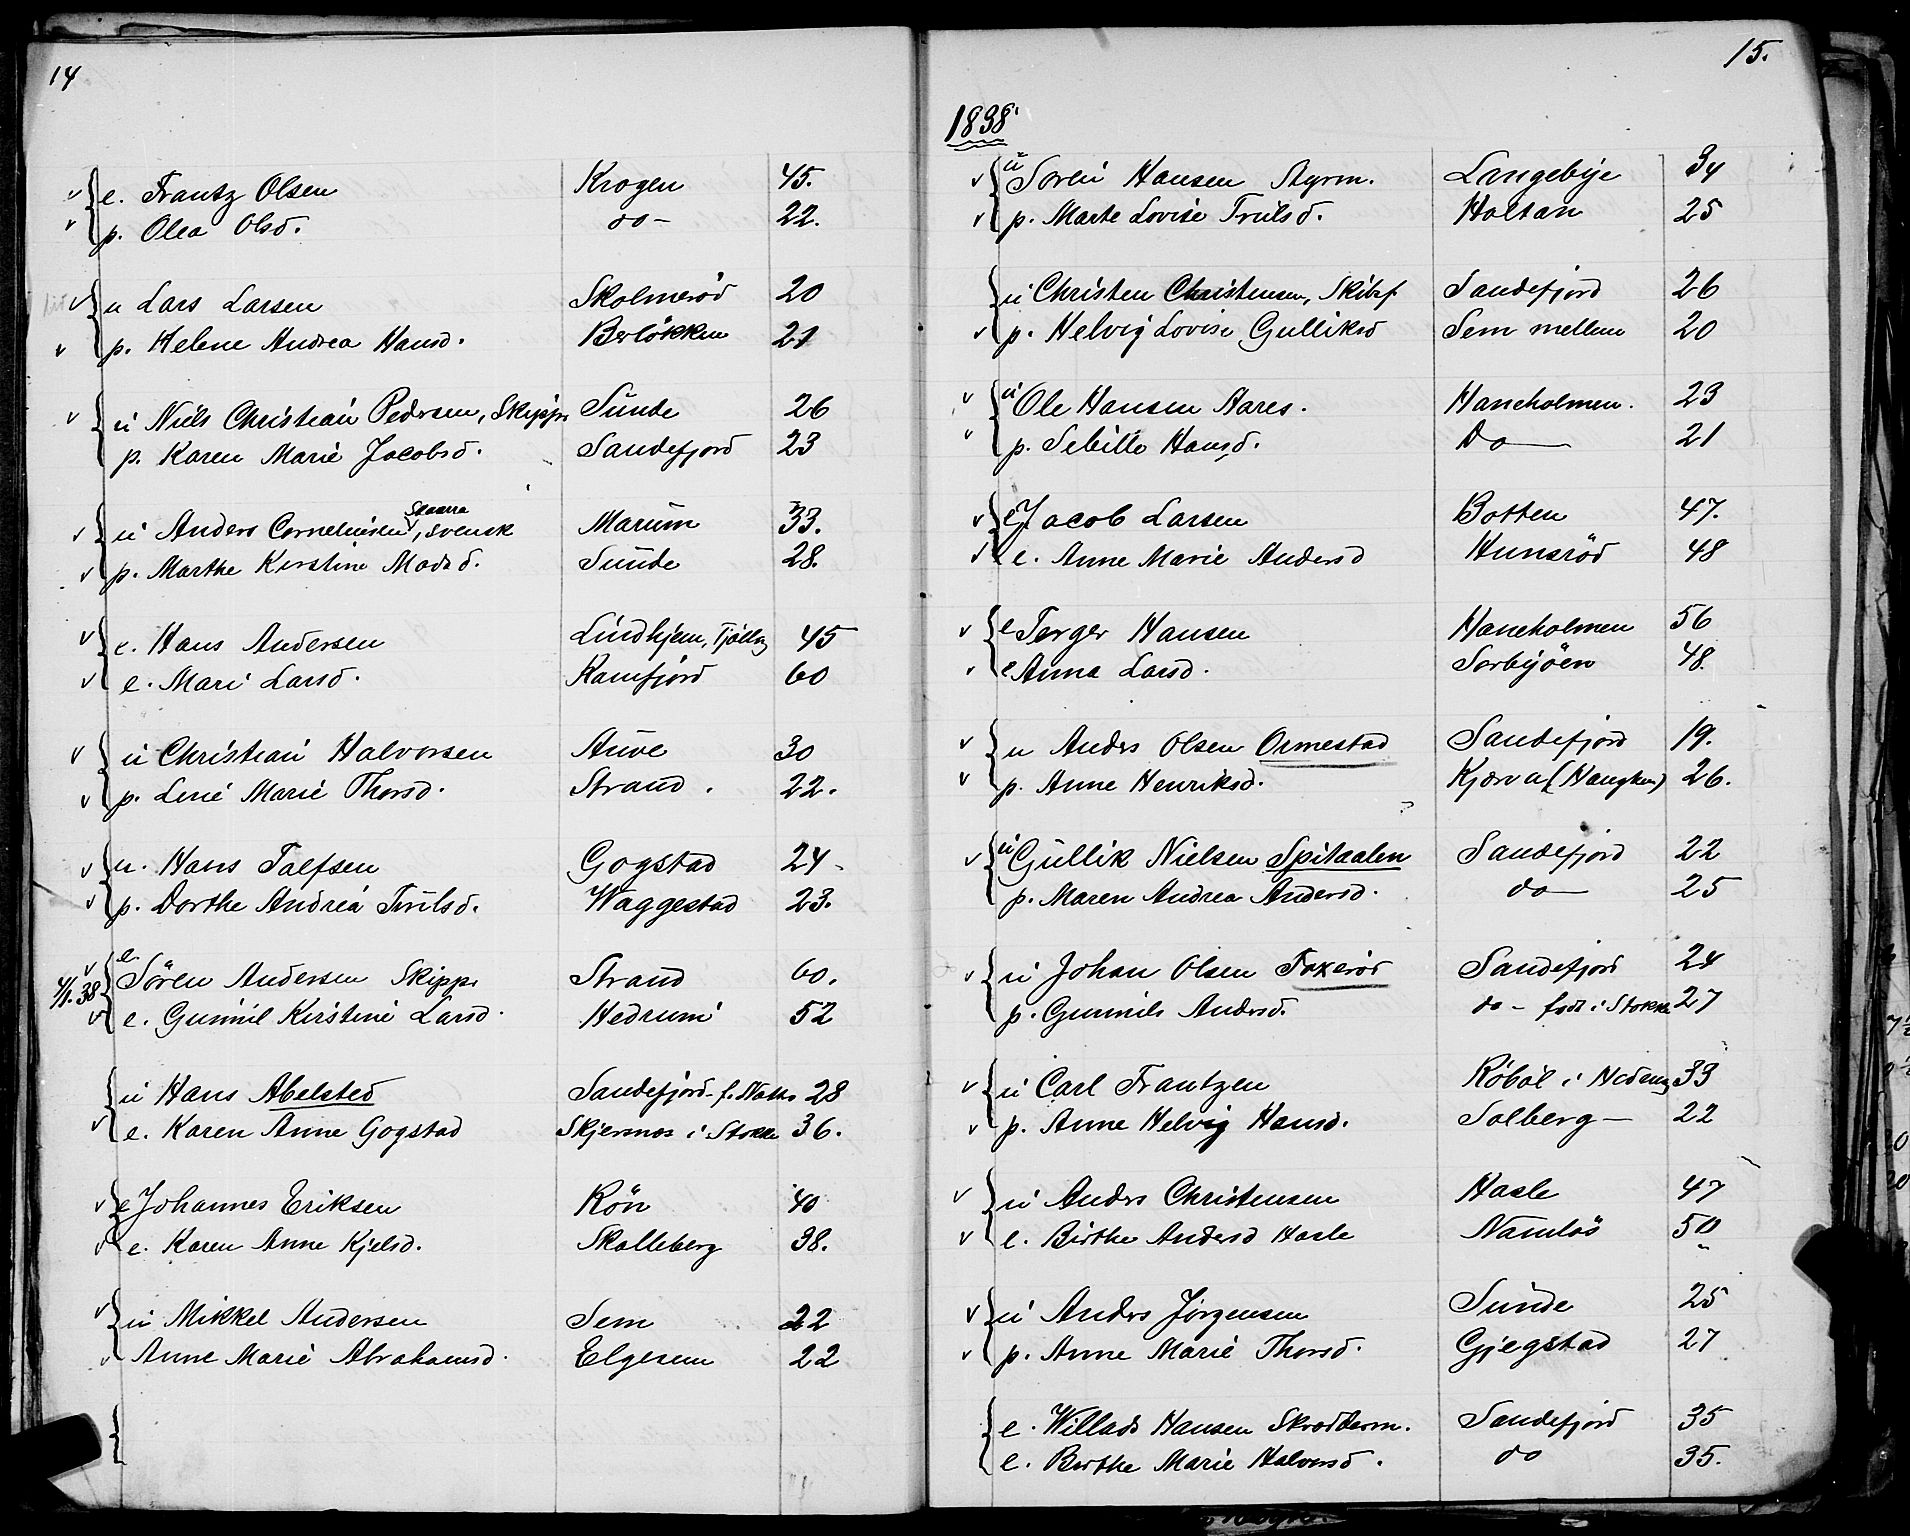 14
e. Frantz Olsen Krogen 45.
p. Olea Olsd. do - 22.
u Lars Larsen Skolmeröd 20
p. Helene Andrea Hansd. Berlökken 21
u Niels Christian Pedersen, Skippr Sunde 26
p. Karen Marie Jacobsd. Sandefjord 23
Skaarra
u Anders Corneliusen, svensk Marum 33.
p. Marthe Kirstine Madsd. Sunde 28.
e. Hans Andersen Lindhjem, Tjölling 45
e. Mari Larsd. Kamfjord 60
u Christian Halvorsen Auve 30
p. Line Marie Thorsd. Strand. 22.
u. Hans Tolfsen Gogstad 24
p. Dorthe Andrea Trulsd. Waggestad 23.
4/1. 38 e Sören Andersen Skippr Strand 60.
e. Gunnil Kirstine Larsd. Hedrum 52
u Hans Abelsted Sandefjord f. 28
e. Karen Anne Gogstad Skjersnos i Stokke 36.
e Johannes Eriksen Rön 40
e. Karen Anne Kjelsd. Skalleberg 38.
u Mikkel Andersen Sem 22
Anne Marie Abrahamsd. Elgesem 22
15.
1838
u Soren Hansen Styrm. Langebye 34
p. Marte Lovise Trulsd. Holtan 25
u Christen Christensen, Skibsf. Sandefjord 26
p. Helvig Lovise Gulliksd Sem mellem 20
u Ole Hansen Aares. Haneholmen. 23
p. Sebille Hansd. Do 21
e Jacob Larsen Botten 47.
e. Anne Marie Andersd Hunsröd 48
e Terger Hansen Haneholmen 56
e Anna Larsd. Sorbyöen 48.
u Anders Olsen Ormestad Sandefjord 19.
p. Anne Henriksd. Kjærva (Haugken) 26.
u Gullik Nielsen Spitaalen Sandefjord 22
p. Maren Andrea Andersd. do 25
u Johan Olsen Foxeröd Sandefjord 24
p. Gunnild Andersd. do - født i Stokke 27
u Carl Frantzen Röböl i 33
p. Anne Helvig Hansd. Solberg 22
u Anders Christensen Hasle 47
e. Birthe Andersd Hasle Namlös 50
u Anders Jörgensen Sunde 25
p. Anne Marie Thorsd. Gjegstad 27
e. Willads Hansen Skrædderm. Sandefjord 35
e. Berthe Marie Halvorsd. do 35.